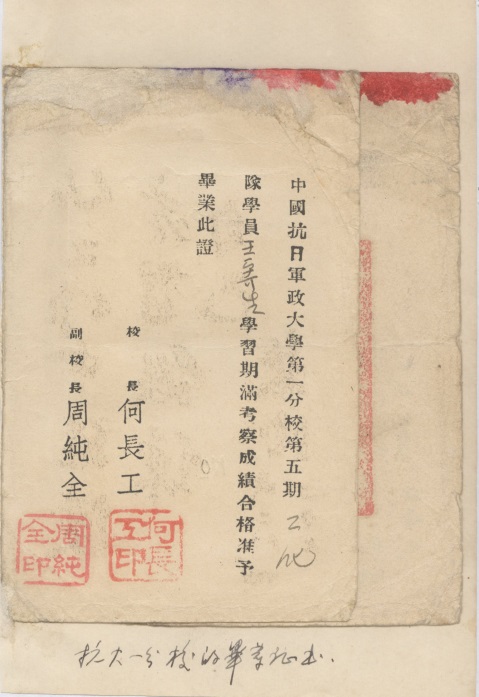 中國抗日軍政大學第一分校第五期二
隊學員王壽生學習期滿考察成績合格准予
畢業此證
校長何長工
副校長周純全
何長工印
周純全印
抗大一分校的畢業证书.